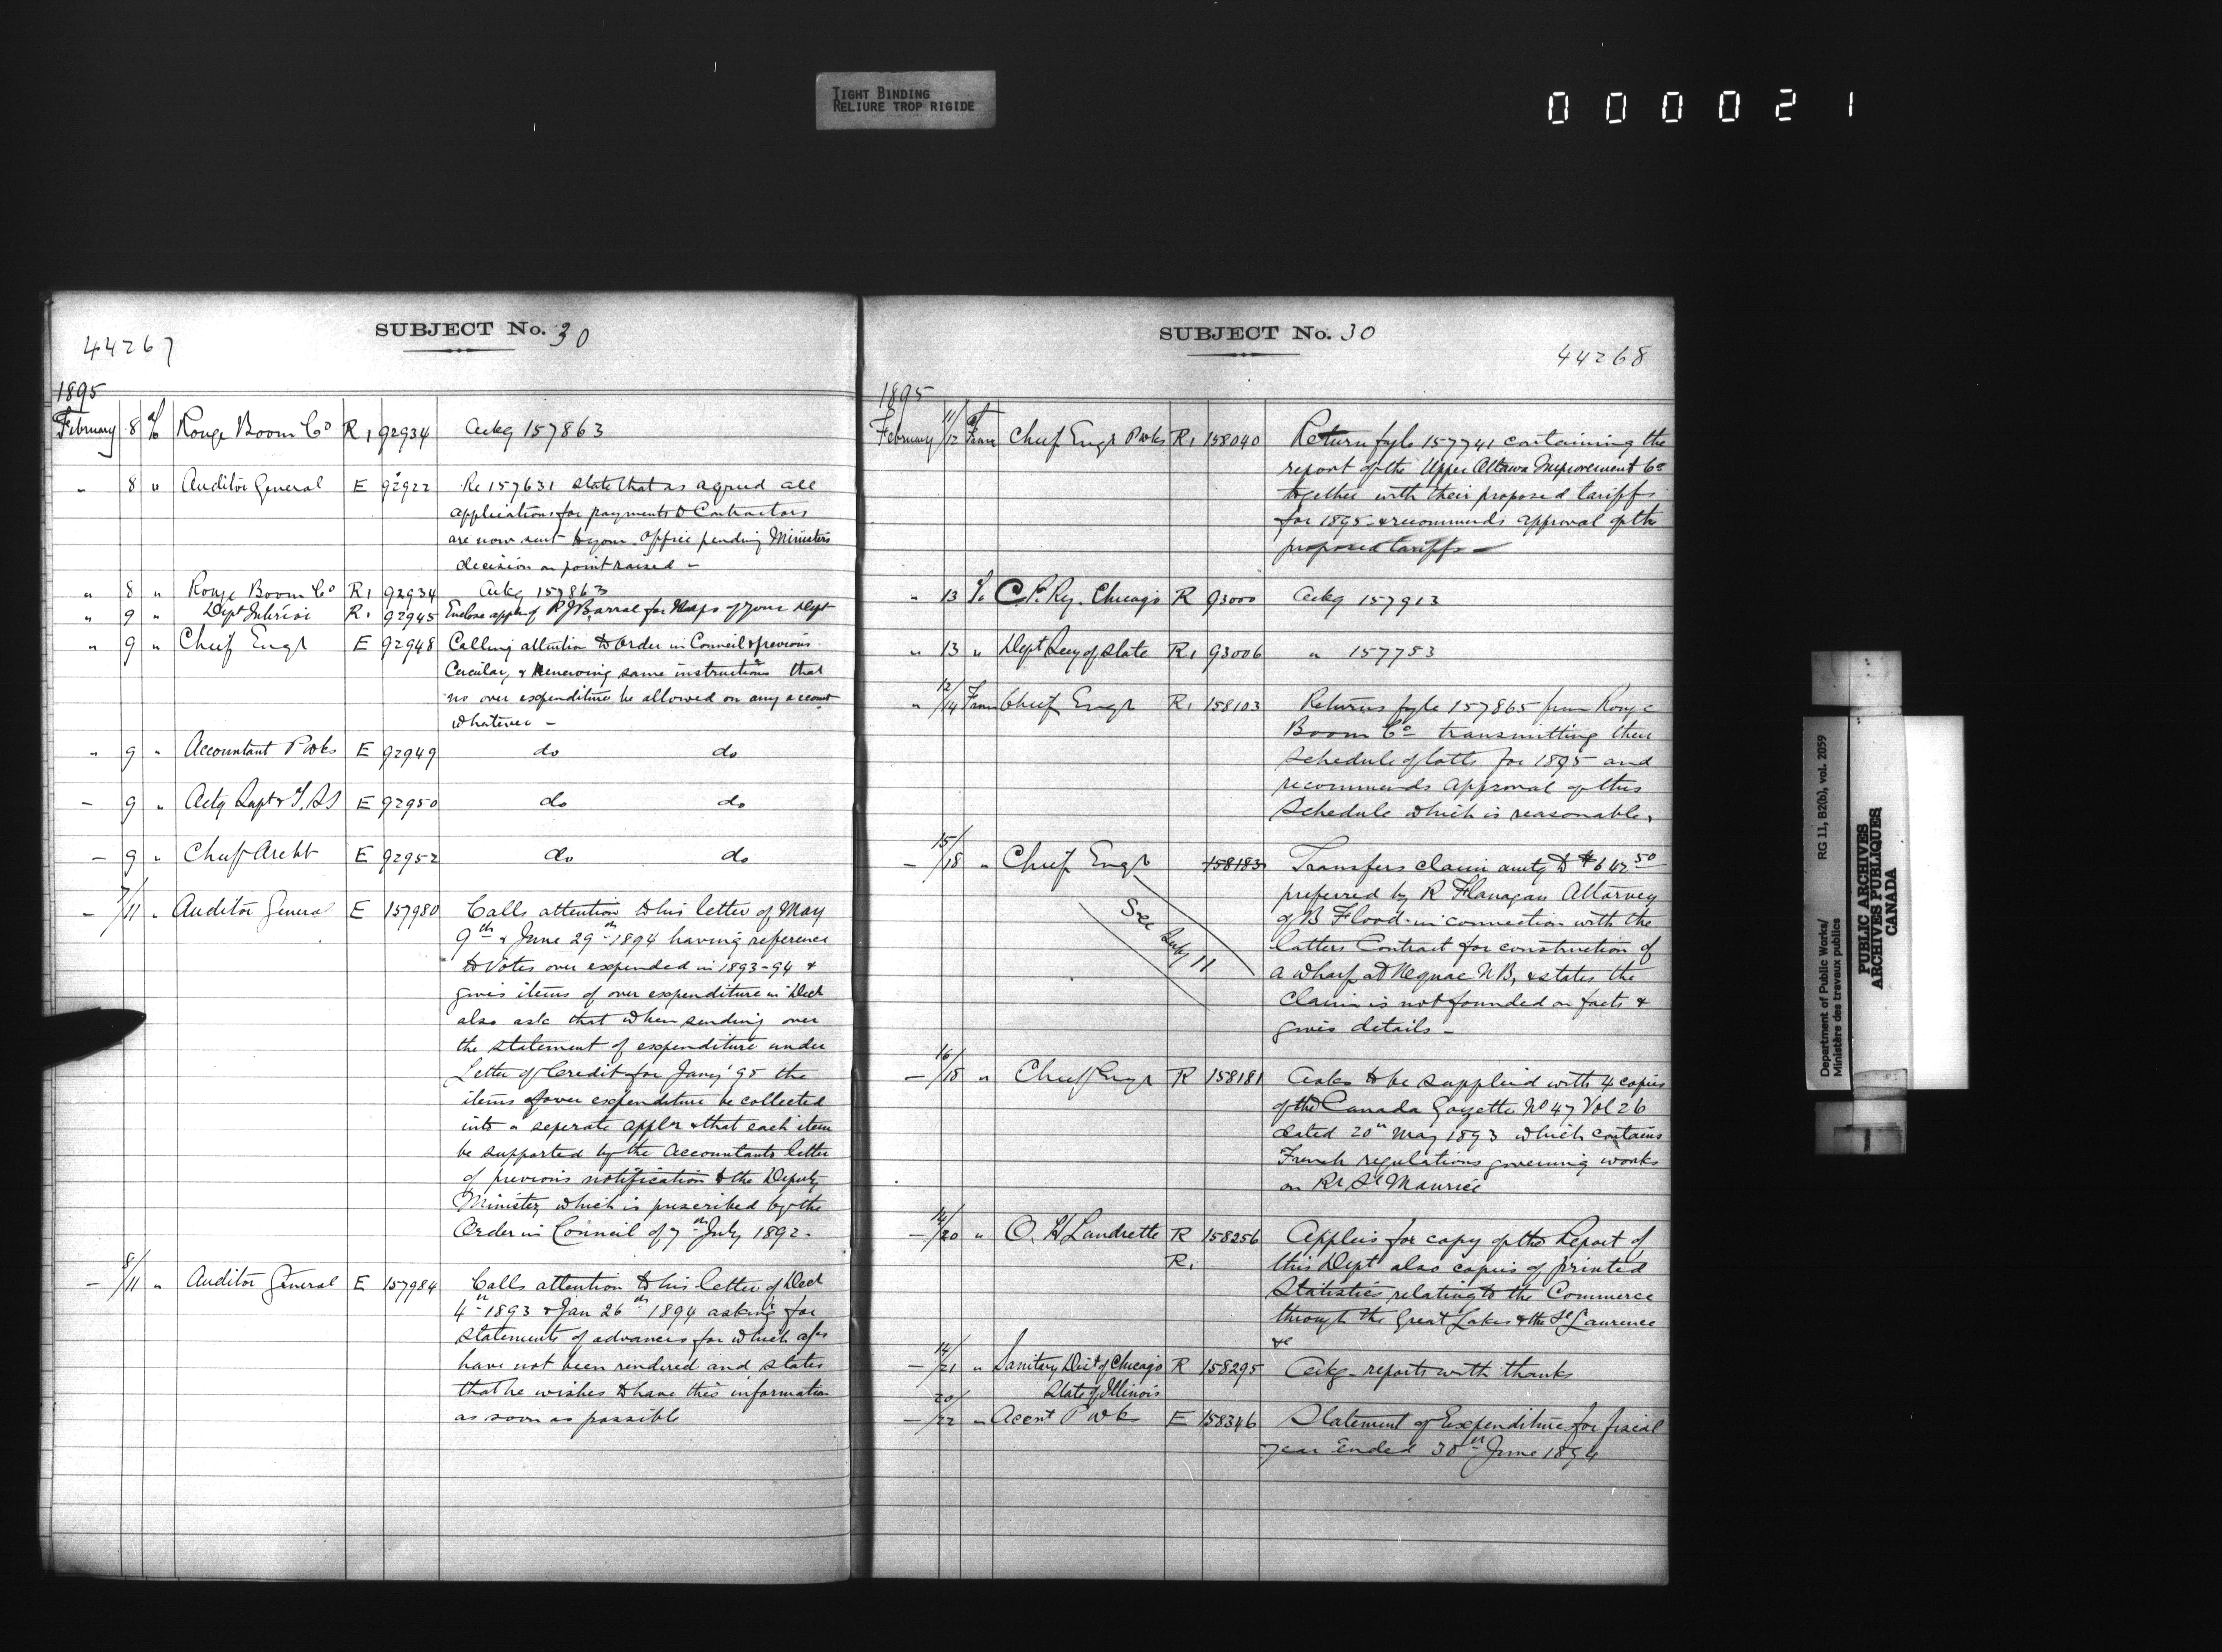 TIGHT BINDING
RELIURE TROP RIGIDE
000021
SUBJECT No. 30
44267
1895
February 8 To Rouge Boom Co R1 92934 Ackg 157863
" 8 " Auditor General E 92922 Re 157631 state that as agreed all
applications for payments to Contractors
are now sent to your office pending Ministers
decision on point raised -
" 8 " Rouge Boom Co R1 92934 Ackg 157863
" 9 " Dept Interior R1 92945 Enclose appln of P J Barral for Maps of your Dept
" 9 " Chief Engr E 92948 Calling attention to Order in Council & previous
Circular, & Renewing same instructions that
no over expenditure be allowed on any account
whatever -
" 9 " Accountant P Wks E 92949 do do
- 9 " Actg Supt T. SS E 92950 do do
- 9 " Chief Archt E 92952 do do
- 7/11 " Auditor General E 157980 Calls attention to his letter of May
9th & June 29th 1894 having reference
to Votes over expended in 1893-94 &
gives items of over expenditure in Decr
also ask that when sending over
the statement of expenditure under
Letter of Credit for Jany '95 the
items of over expenditure be collected
into a seperate appln & that each item
be supported by the Accountants letter
of previous notification to the Deputy
Minister, which is prescribed by the
Order in Council of 7th July 1892.
- 8/11 " Auditor General E 157984 Calls attention to his letter of Decr
4th 1893 & Jan 26th 1894 asking for
statements of advances for which a/cs
have not been rendered and states
that he wishes to have this information
as soon as possible
SUBJECT No. 30
44268
1895
February 11/12 From Chief Engr P Wks R1 158040 Return fyle 157741 containing the
report of the Upper Ottawa Improvement Co
together with their proposed tariffs
for 1895 & recommends approval of the
proposed tariffs -
" 13 To C.P. Ry. Chicago R 93000 Ackg 157913
" 13 " Dept Secy of State R1 93006 " 157753
" 12/14 From Chief Engr R1 158103 Returns fyle 157865 from Rouge
Boom Co transmitting their
schedule of tolls for 1895 and
recommends approval of this
schedule which is reasonable.
- 15/18 " Chief Engr 158183 Transfers claim amtg to $642 50
preferred by R Flanagan Attorney
of B Flood in connection with the
latters Contract for construction of
a wharf at Neguac N B, & states the
claim is not founded on facts &
gives details -
See Subj 11
- 16/18 " Chief Engr R 158181 Asks to be supplied with 4 copies
of the Canada Gazette No 47 Vol 26
dated 20th May 1893 which contains
French regulations governing works
on Rr St Maurice
- 14/20 " O. H Landrette R 158256 Applies for copy of the Report of
R1 this Dept also copies of printed
Statistics relating to the Commerce
through the Great Lakes & the St Laurence
&c
- 14/21 " Sanitary Dist of Chicago R 158295 Ackg - reports with thanks
State of Illinois
- 20/22 " Accnt P Wks E 158346 Statement of Expenditure for fiscal
year ended 30th June 1894
Department of Public Works/ RG 11, B2(b), vol. 2059
Ministère des travaux publics
PUBLIC ARCHIVES
ARCHIVES PUBLIQUES
CANADA